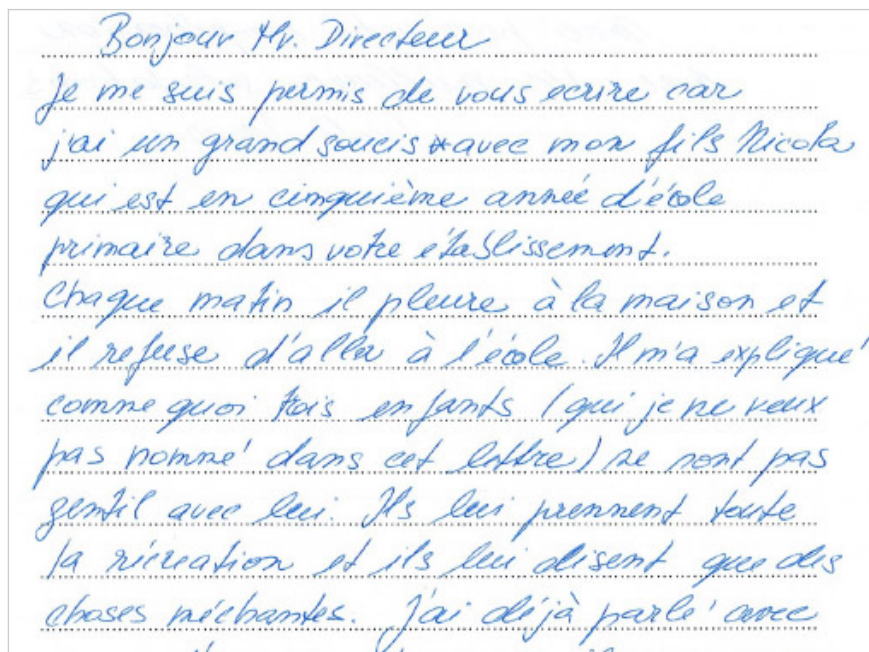 Bonjour Mr. Directeur
Je me suis permis de vous ecrire car
j'ai un grand soucis avec mon fils Nicola
qui est en cinquième année d'école
primaire dans votre établissement.
Chaque matin il pleure à la maison et
il refuse d'aller à l'école. Il m'a expliqué
comme quoi trois enfants (qui je ne veux
pas nommé dans cet lettre) ne sont pas
gentil avec lui. Ils lui prennent toute
la récreation et ils lui disent que des
choses méchantes. J'ai déjà parlé avec